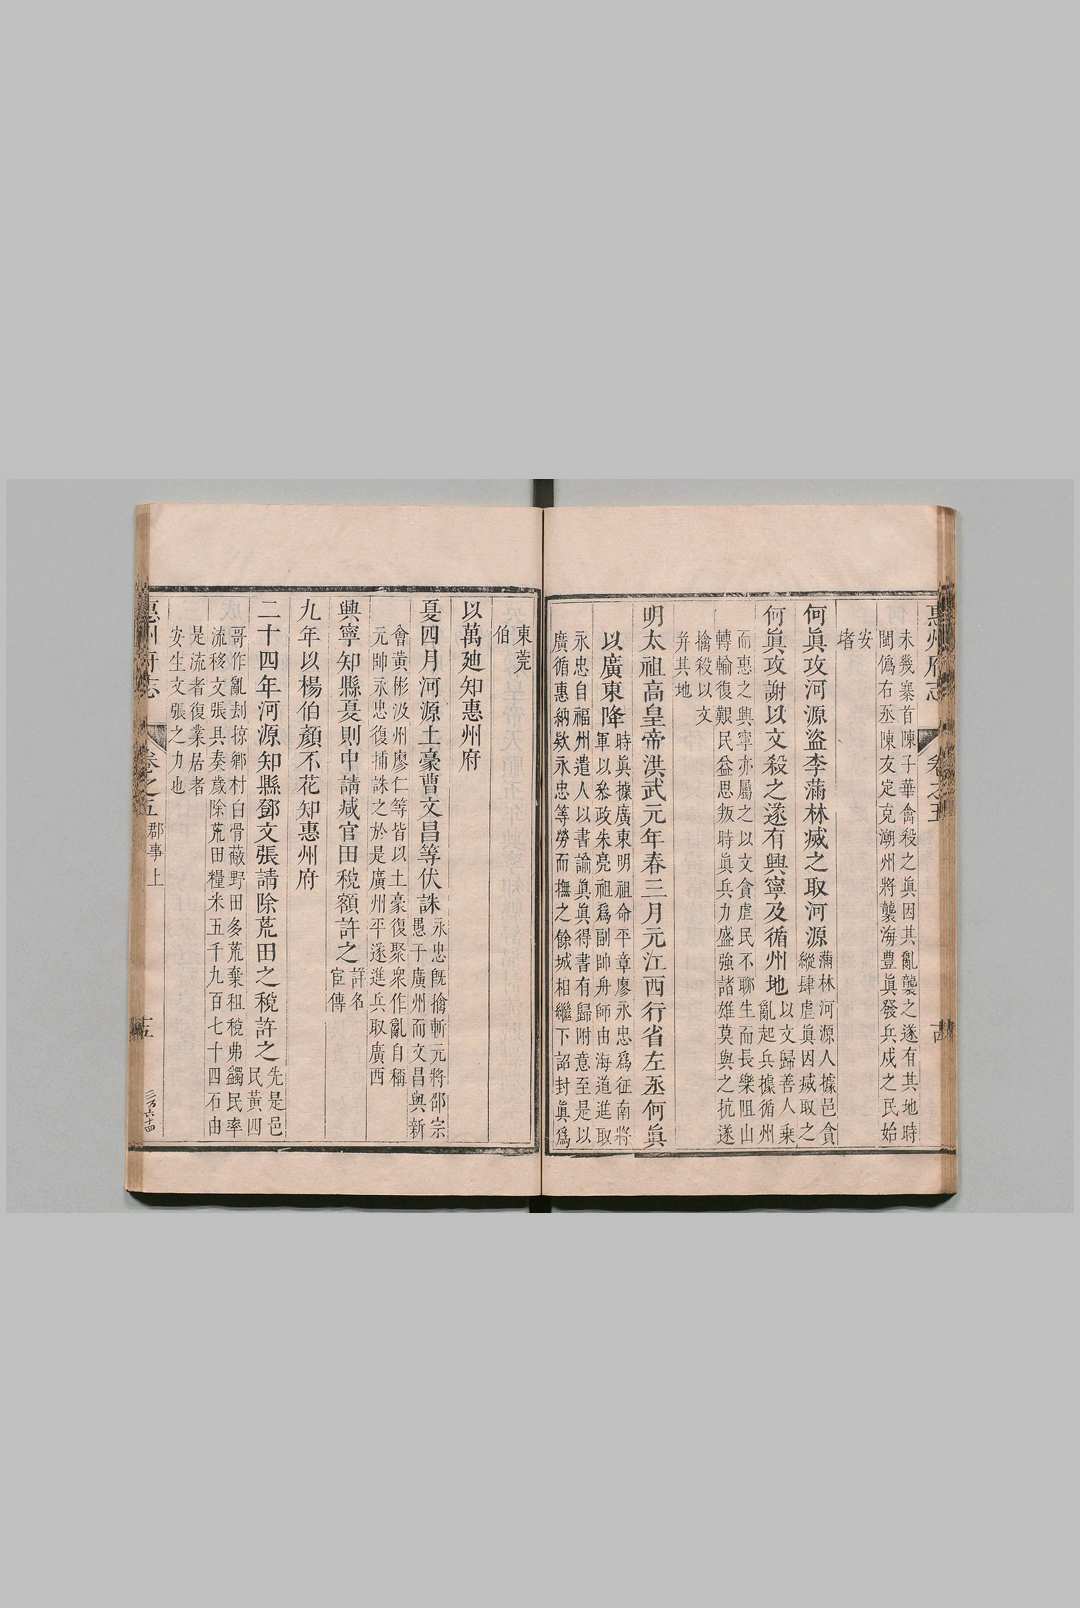 惠州府志 卷之五
未幾寨首陳子華禽殺之眞因其亂襲之遂有其地時
閩僞右丞陳友定克潮州將襲海豐眞發兵戍之民始
安
堵
何眞攻河源盜李滿林滅之取河源
滿林河源人據邑貪
縱肆虐眞因滅取之
何眞攻謝以文殺之遂有興寧及循州地
以文歸善人乗
亂起兵據循州
而惠之興寧亦屬之以文貪虐民不聊生而長樂阻山
轉輸復艱民益思叛時眞兵力盛強諸雄莫與之抗遂
擒殺以文
并其地
明太祖高皇帝洪武元年春三月元江西行省左丞何眞
以廣東降
時眞據廣東明祖命平章廖永忠爲征南將
軍以叅政朱亮祖爲副帥舟師由海道進取
永忠自福州遣人以書諭眞眞得書有歸附意至是以
廣循惠納欵永忠等勞而撫之餘城相繼下詔封眞爲
東莞
伯
以萬廸知惠州府
夏四月河源土豪曹文昌等伏誅
永忠旣擒斬元將邵宗
愚于廣州而文昌與新
會黃彬汲州廖仁等皆以土豪復聚衆作亂自稱
元帥永忠復捕誅之於是廣州平遂進兵取廣西
興寧知縣夏則中請減官田稅額許之
詳名
宦傳
九年以楊伯顏不花知惠州府
二十四年河源知縣鄧文張請除荒田之稅許之
先是邑
民黃四
哥作亂刦掠鄉村白骨蔽野田多荒棄租稅弗蠲民率
流移文張具奏歲除荒田糧米五千九百七十四石由
是流者復業居者
安生文張之力也
惠州府志 卷之五 郡事上